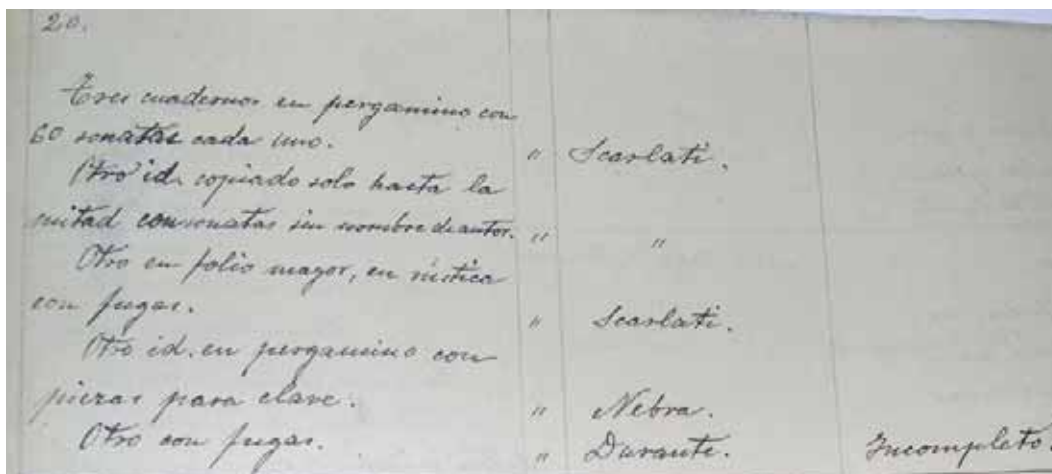 20.
Tres cuadernos en pergamino con
60 sonatas cada uno. " Scarlati.
Otro id. copiado solo hasta la
mitad con sonatas sin nombre de autor. " "
Otro en folio mayor, en rústica
con fugas. " Scarlati.
Otro id. en pergamino con
piezas para clave. " Nebra.
Otro con fugas. " Durante. Incompleto.